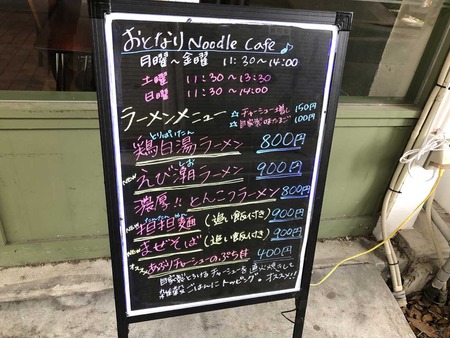 おとなり Noodle Cafe ♪
月曜〜金曜 11:30〜14:00
土曜 11:30〜13:30
日曜 11:30〜14:00
ラーメンメニュー
☆チャーシュー増し 150円
☆自家製味たまご 100円
とりぱいたん
鶏白湯ラーメン 800円
しお
NEW えび潮ラーメン 900円
濃厚!! とんこつラーメン 800円
NEW 担担麺 (追い飯付き) 900円
NEW まぜそば (追い飯付き) 900円
オススメ あぶりチャーシューのぷち丼 400円
自家製とろけるチャーシューを直火焼きして
雑穀ごはんにトッピング。オススメ!!